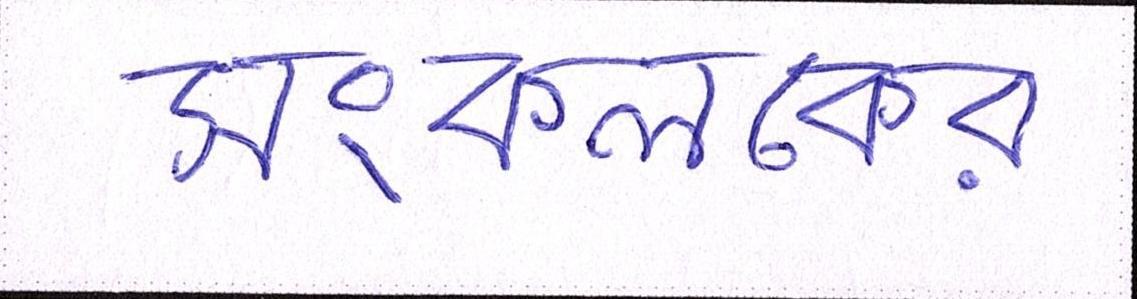 ডাংকলকের